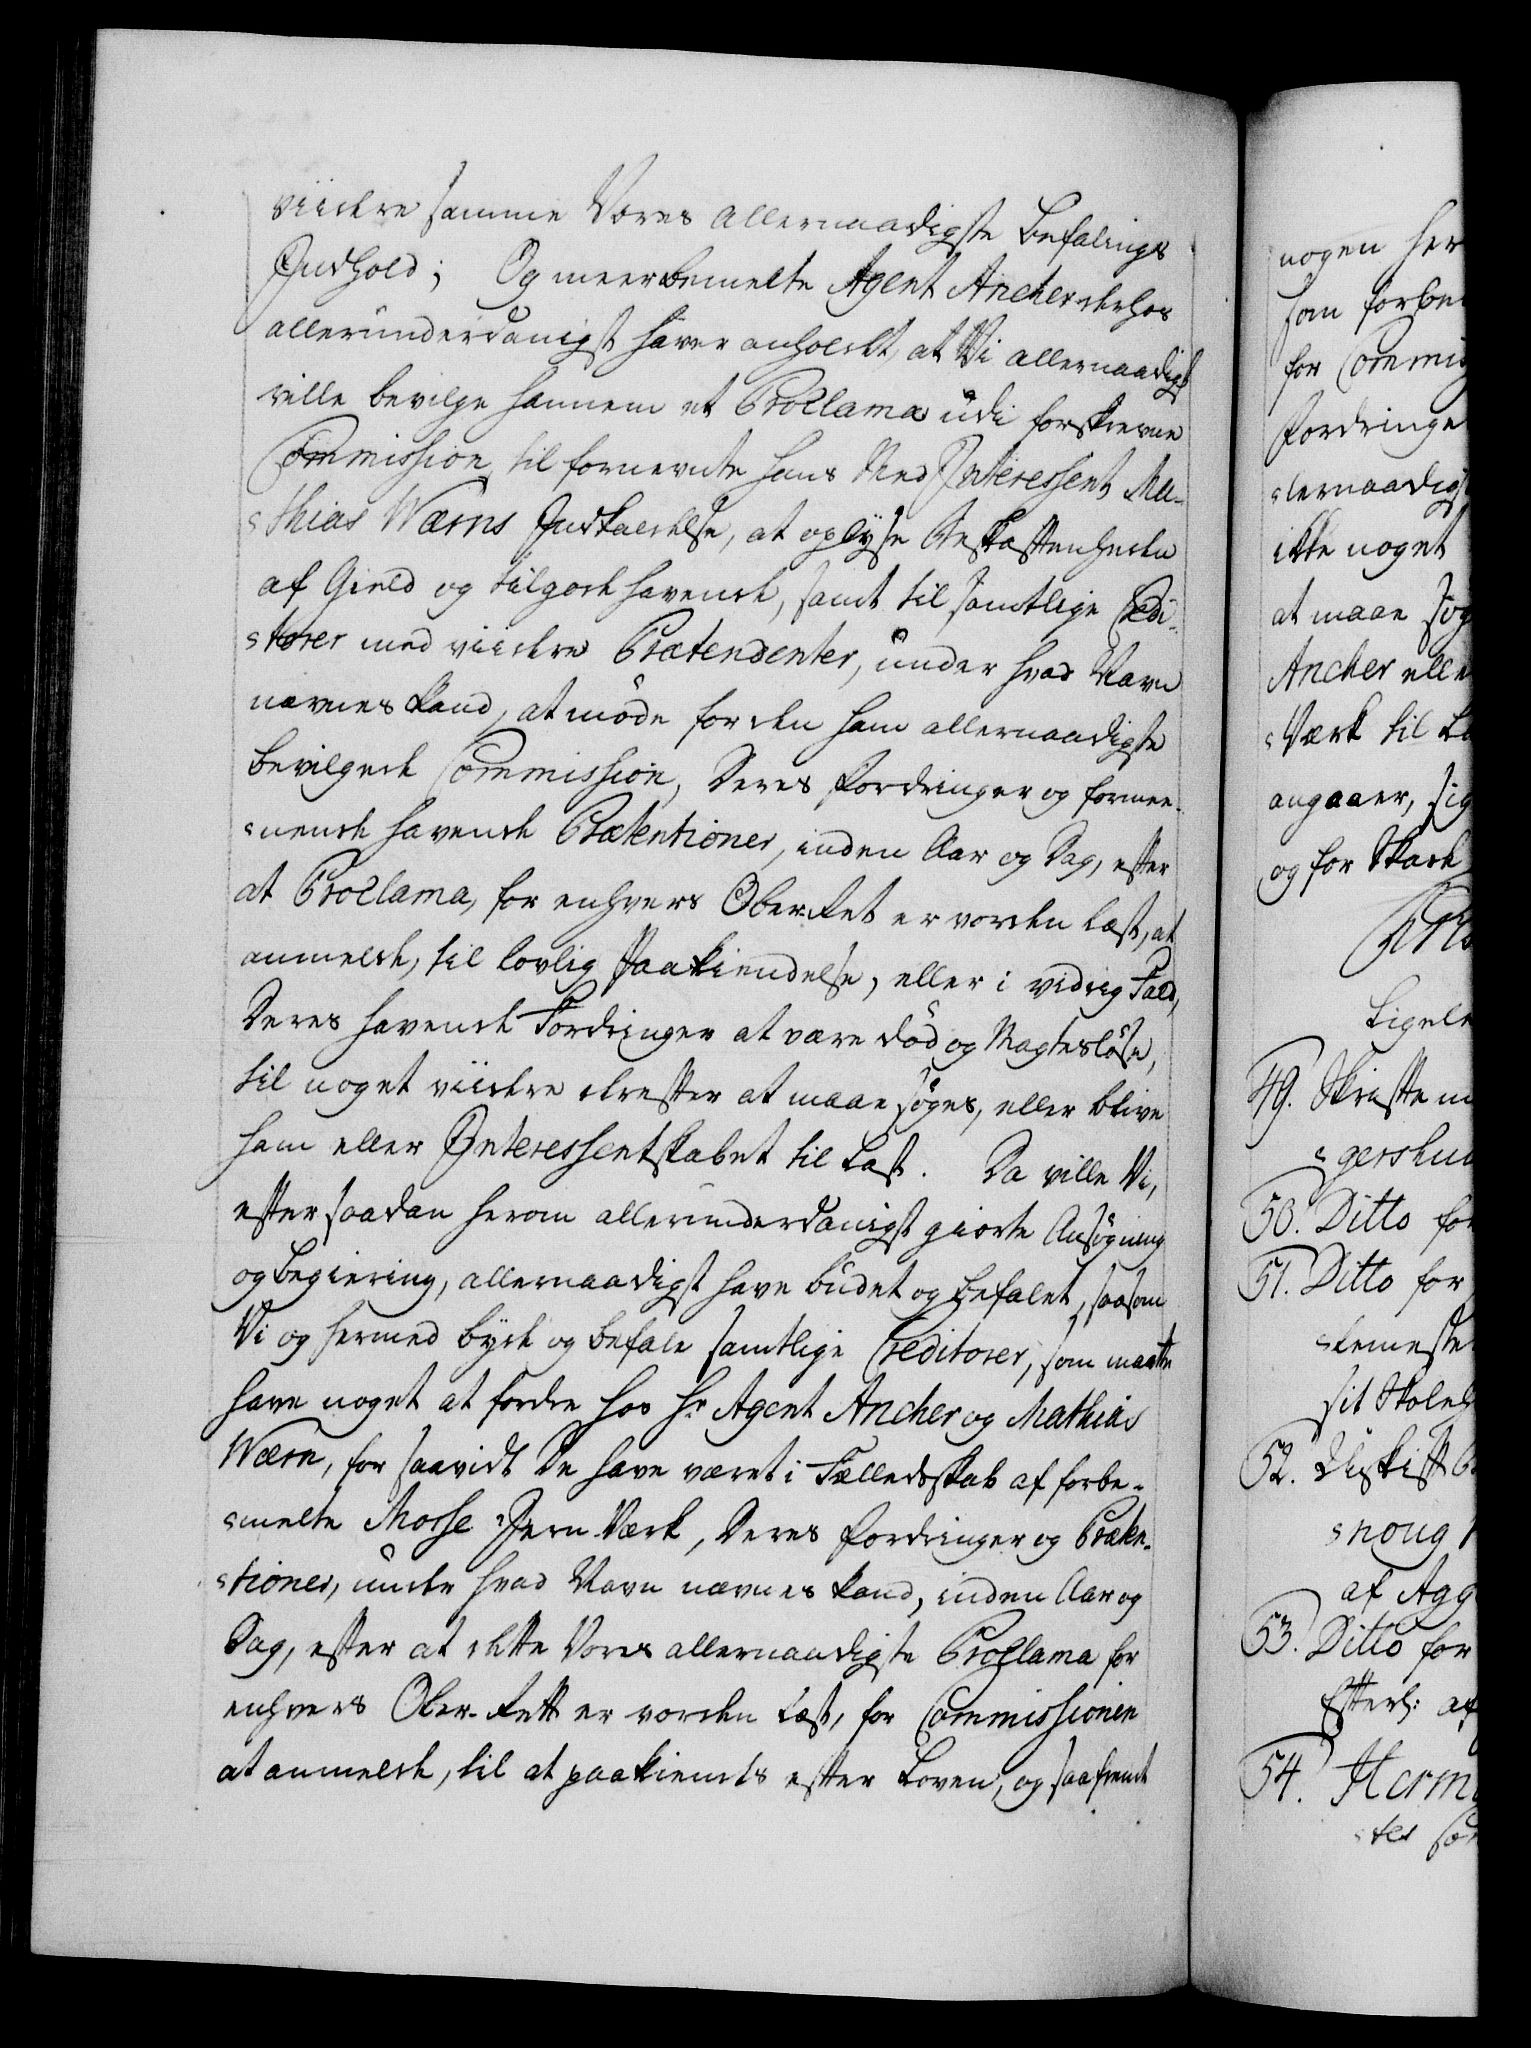 viidere samme Vores allernaadigste Befalings
Indhold; Og meerbemelte Agent Ancher derhos
allerunderdanigst haver anholdet, at Vi allernaadigst
ville bevilge hannem et Proclama udi forskrevne
Commission, til fornevnte hans Med Interessent Ma-
thias Wærns Indkaldelse, at oplyse Beskaffenheden
af Gield og tilgodehavende, samt til samtlige Credi-
torer med viidere Prætendenter, under hvad Navn
nævnes kand, at møde for den ham allernaadigste
bevilgede Commission, Deres Fordringer og formee-
nende havende Prætentioner, inden Aar og Dag, efter
at Proclama, for enhvers Ober-Ret er vorden læst, at
anmelde, til lovlig Paakiendelse, eller i vidrig Fald,
Deres havende Fordringer at være død og Magtesløse,
til noget viidere derefter at maae søges, eller blive
ham eller Interessentskabet til Last. Da ville Vi,
efter saadan herom allerunderdanigst giorte Ansøgning
og Begiering, allernaadigst have budet og befalet, saasom
Vi og hermed byde og befale samtlige Creditorer, som maatte
have noget at fordre hos Hr Agent Ancher og Mathias
Wærn, for saavidt De have været i Fælledsskab af forbe-
melte Mosse Jern-Værk, Deres Fordringer og Præten-
tioner, under hvad Navn nævnes kand, inden Aar og
Dag, efter at dette Vores allernaadigste Proclama for
enhvers Ober-Rett er vorden læst, for Commissionen
at anmelde, til at paakiendes efter Loven, og saafremt
nogen her
som forbe
for Commis
Fordringe
lernaadigst
ikke noget
at maae søg
Ancher elle
Værk til La
angaaer, sig
og for Skade
Ligele
49. Skrifte m
gershu
50. Ditto for
51. Ditto for
temeste
sit Skoleh
52. Uskift B
noug
af Agg
53. Ditto for
Efterl: af
54. Herm
tes